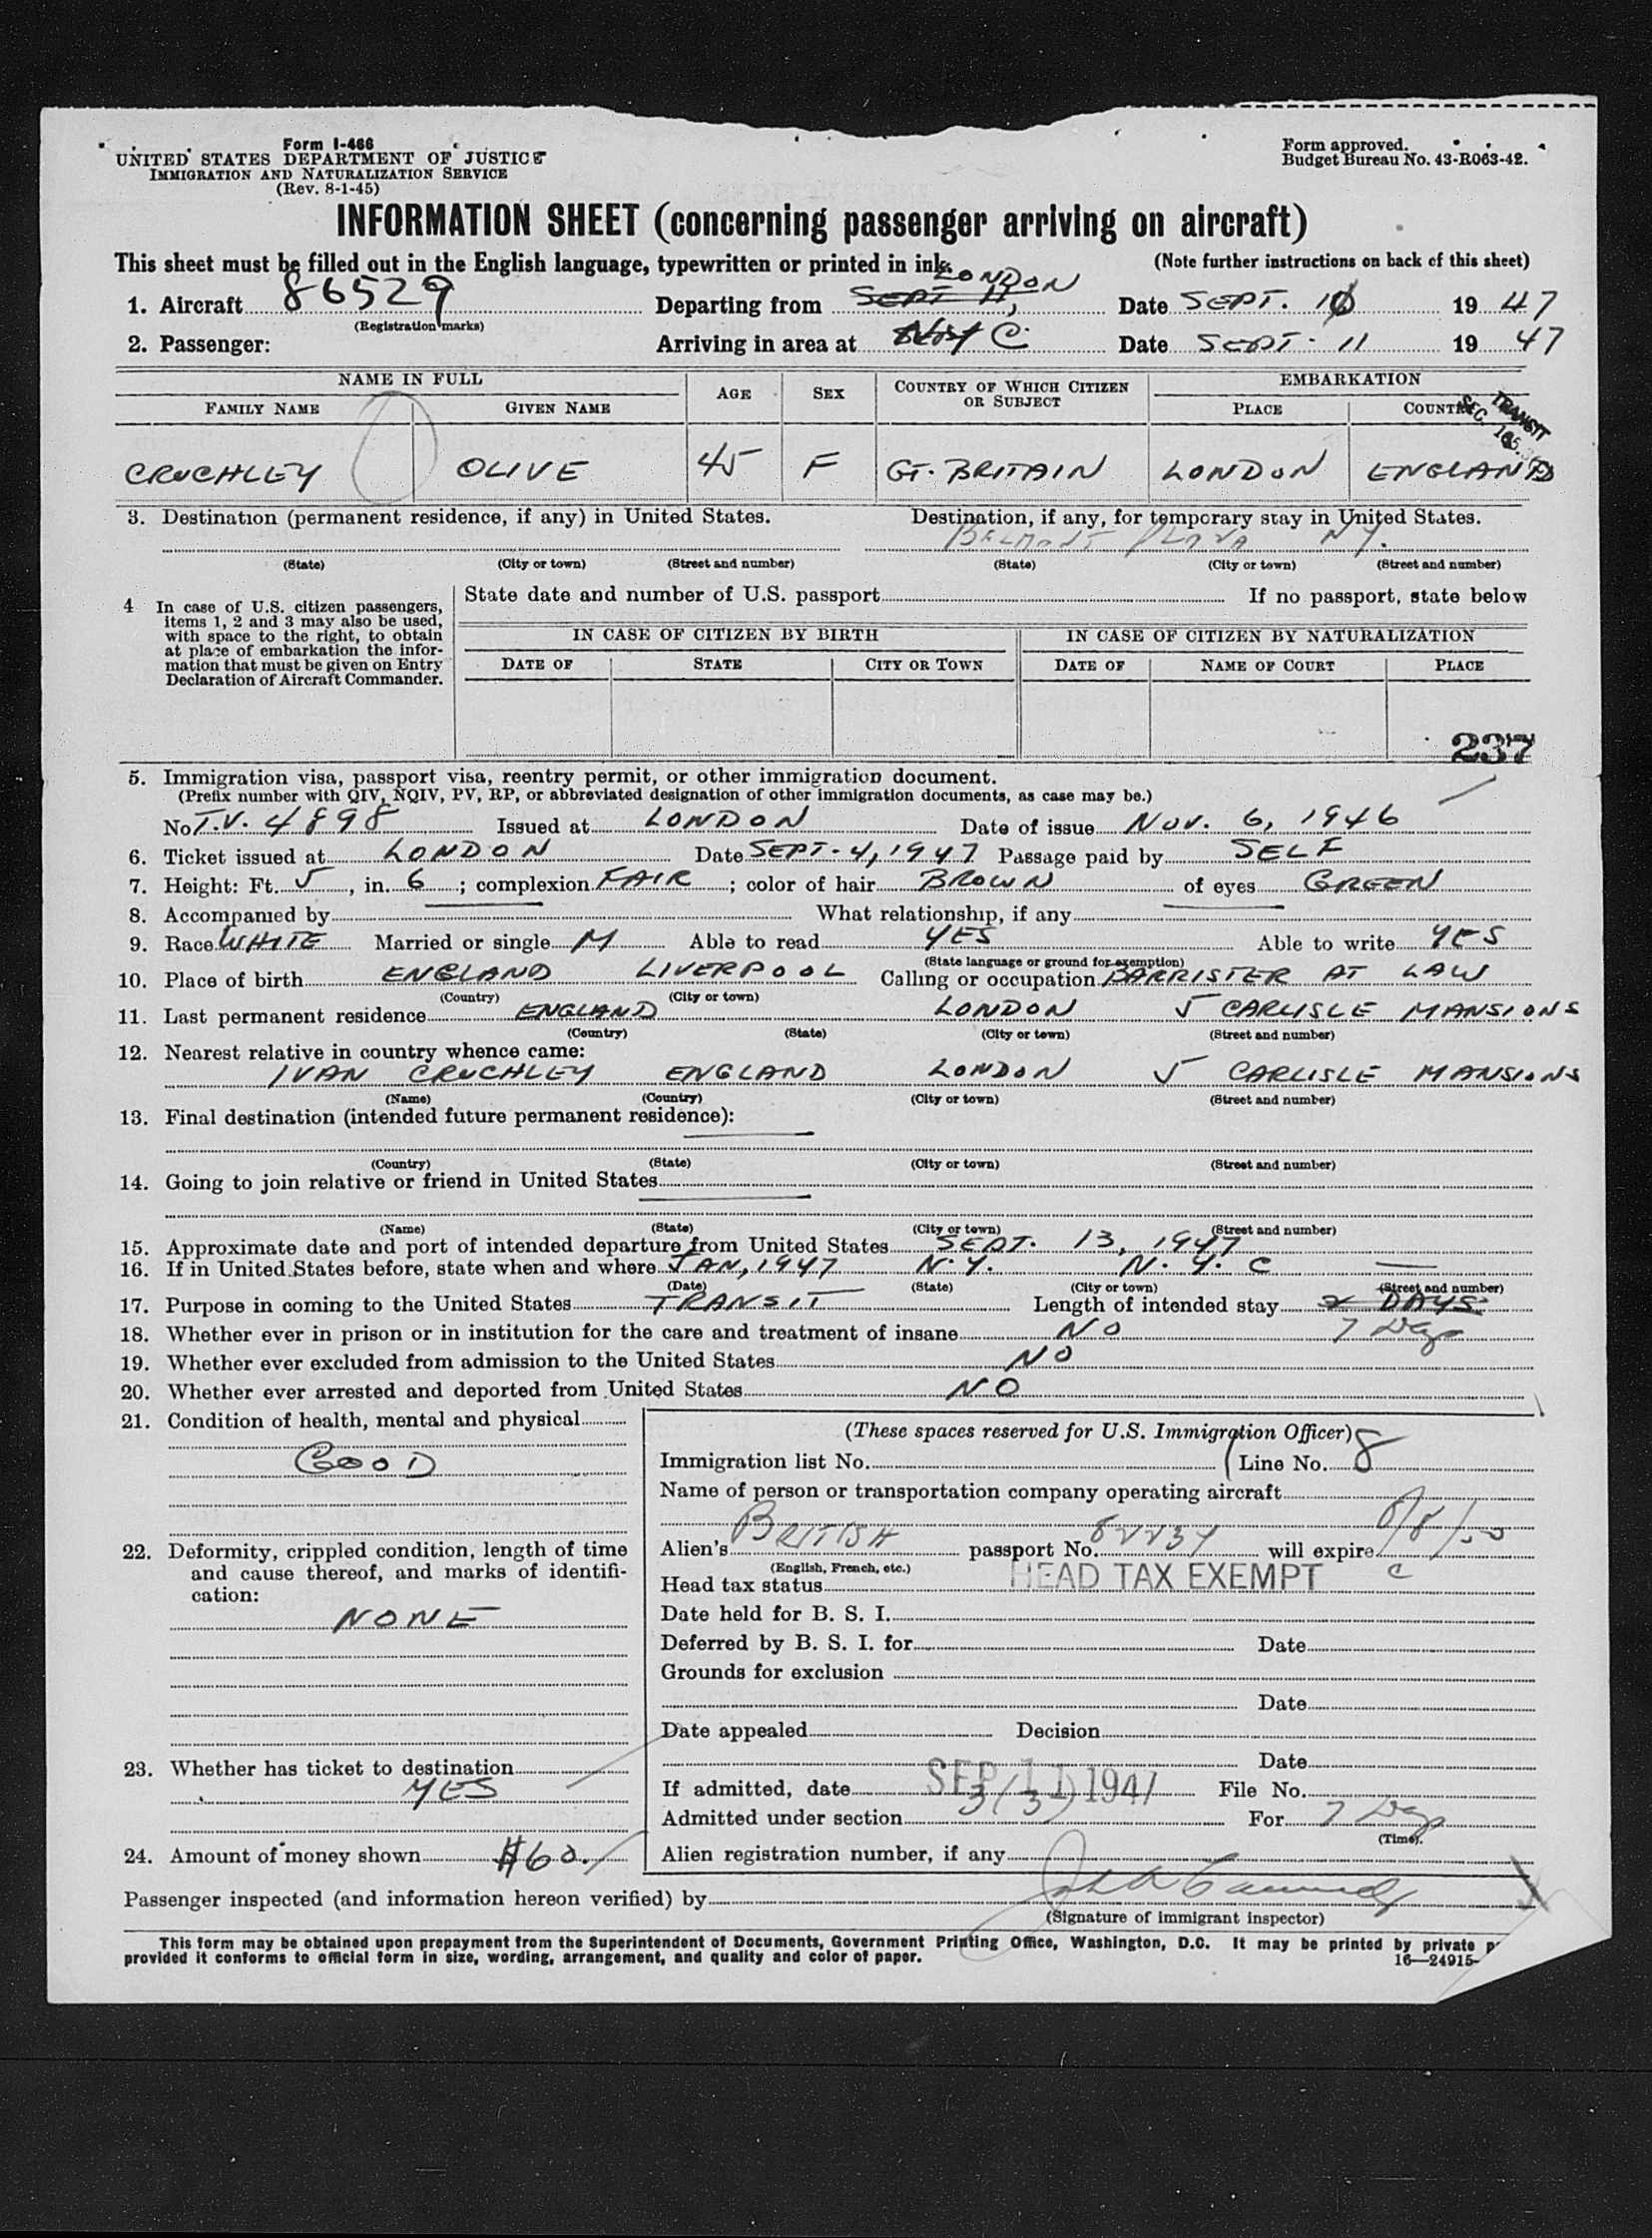 Form I-466
UNITED STATES DEPARTMENT OF JUSTICE
IMMIGRATION AND NATURALIZATION SERVICE
(Rev. 8-1-45)
Form approved.
Budget Bureau No. 43-R063-42.
INFORMATION SHEET (concerning passenger arriving on aircraft)
This sheet must be filled out in the English language, typewritten or printed in ink. (Note further instructions on back of this sheet)
LONDON
1. Aircraft 86529 Departing from SEPT 11, Date SEPT. 10 19 47
(Registration marks)
2. Passenger: Arriving in area at NY C. Date SEPT. 11 19 47
NAME IN FULL AGE SEX COUNTRY OF WHICH CITIZEN OR SUBJECT EMBARKATION
FAMILY NAME GIVEN NAME PLACE COUNTRY
TRANSIT
SEC.
CRUCHLEY OLIVE 45 F GT. BRITAIN LONDON ENGLAND
3. Destination (permanent residence, if any) in United States. Destination, if any, for temporary stay in United States.
BELMONT PLAZA NY.
(State) (City or town) (Street and number) (State) (City or town) (Street and number)
4 In case of U.S. citizen passengers, items 1, 2 and 3 may also be used, with space to the right, to obtain at place of embarkation the information that must be given on Entry Declaration of Aircraft Commander.
State date and number of U.S. passport If no passport, state below
IN CASE OF CITIZEN BY BIRTH IN CASE OF CITIZEN BY NATURALIZATION
DATE OF STATE CITY OR TOWN DATE OF NAME OF COURT PLACE
237
5. Immigration visa, passport visa, reentry permit, or other immigration document.
(Prefix number with QIV, NQIV, PV, RP, or abbreviated designation of other immigration documents, as case may be.)
No T.V. 4898 Issued at LONDON Date of issue NOV. 6, 1946
6. Ticket issued at LONDON Date SEPT-4, 1947 Passage paid by SELF
7. Height: Ft. 5, in. 6; complexion FAIR; color of hair BROWN of eyes GREEN
8. Accompanied by What relationship, if any
9. Race WHITE Married or single M Able to read YES Able to write YES
(State language or ground for exemption)
10. Place of birth ENGLAND LIVERPOOL Calling or occupation BARRISTER AT LAW
(Country) (City or town)
11. Last permanent residence ENGLAND LONDON 5 CARLISLE MANSIONS
(Country) (State) (City or town) (Street and number)
12. Nearest relative in country whence came:
IVAN CRUCHLEY ENGLAND LONDON 5 CARLISLE MANSIONS
(Name) (Country) (City or town) (Street and number)
13. Final destination (intended future permanent residence):
(Country) (State) (City or town) (Street and number)
14. Going to join relative or friend in United States
(Name) (State) (City or town) (Street and number)
15. Approximate date and port of intended departure from United States SEPT. 13, 1947
16. If in United States before, state when and where JAN, 1947 N.Y. N.Y.C
(Date) (State) (City or town) (Street and number)
17. Purpose in coming to the United States TRANSIT Length of intended stay 2 DAYS
18. Whether ever in prison or in institution for the care and treatment of insane NO 7 Days
19. Whether ever excluded from admission to the United States NO
20. Whether ever arrested and deported from United States NO
21. Condition of health, mental and physical
GOOD
22. Deformity, crippled condition, length of time and cause thereof, and marks of identification:
NONE
23. Whether has ticket to destination
YES
24. Amount of money shown $60.
(These spaces reserved for U.S. Immigration Officer)
Immigration list No. Line No. 8
Name of person or transportation company operating aircraft
Alien's BRITISH passport No. will expire
(English, French, etc.)
Head tax status HEAD TAX EXEMPT
Date held for B. S. I.
Deferred by B. S. I. for Date
Grounds for exclusion
Date
Date appealed Decision
Date
If admitted, date SEP 11 1947 File No.
Admitted under section 3(3) For 7 Days
(Time).
Alien registration number, if any
Passenger inspected (and information hereon verified) by
(Signature of immigrant inspector)
This form may be obtained upon prepayment from the Superintendent of Documents, Government Printing Office, Washington, D.C. It may be printed by private
provided it conforms to official form in size, wording, arrangement, and quality and color of paper.
16—24915-